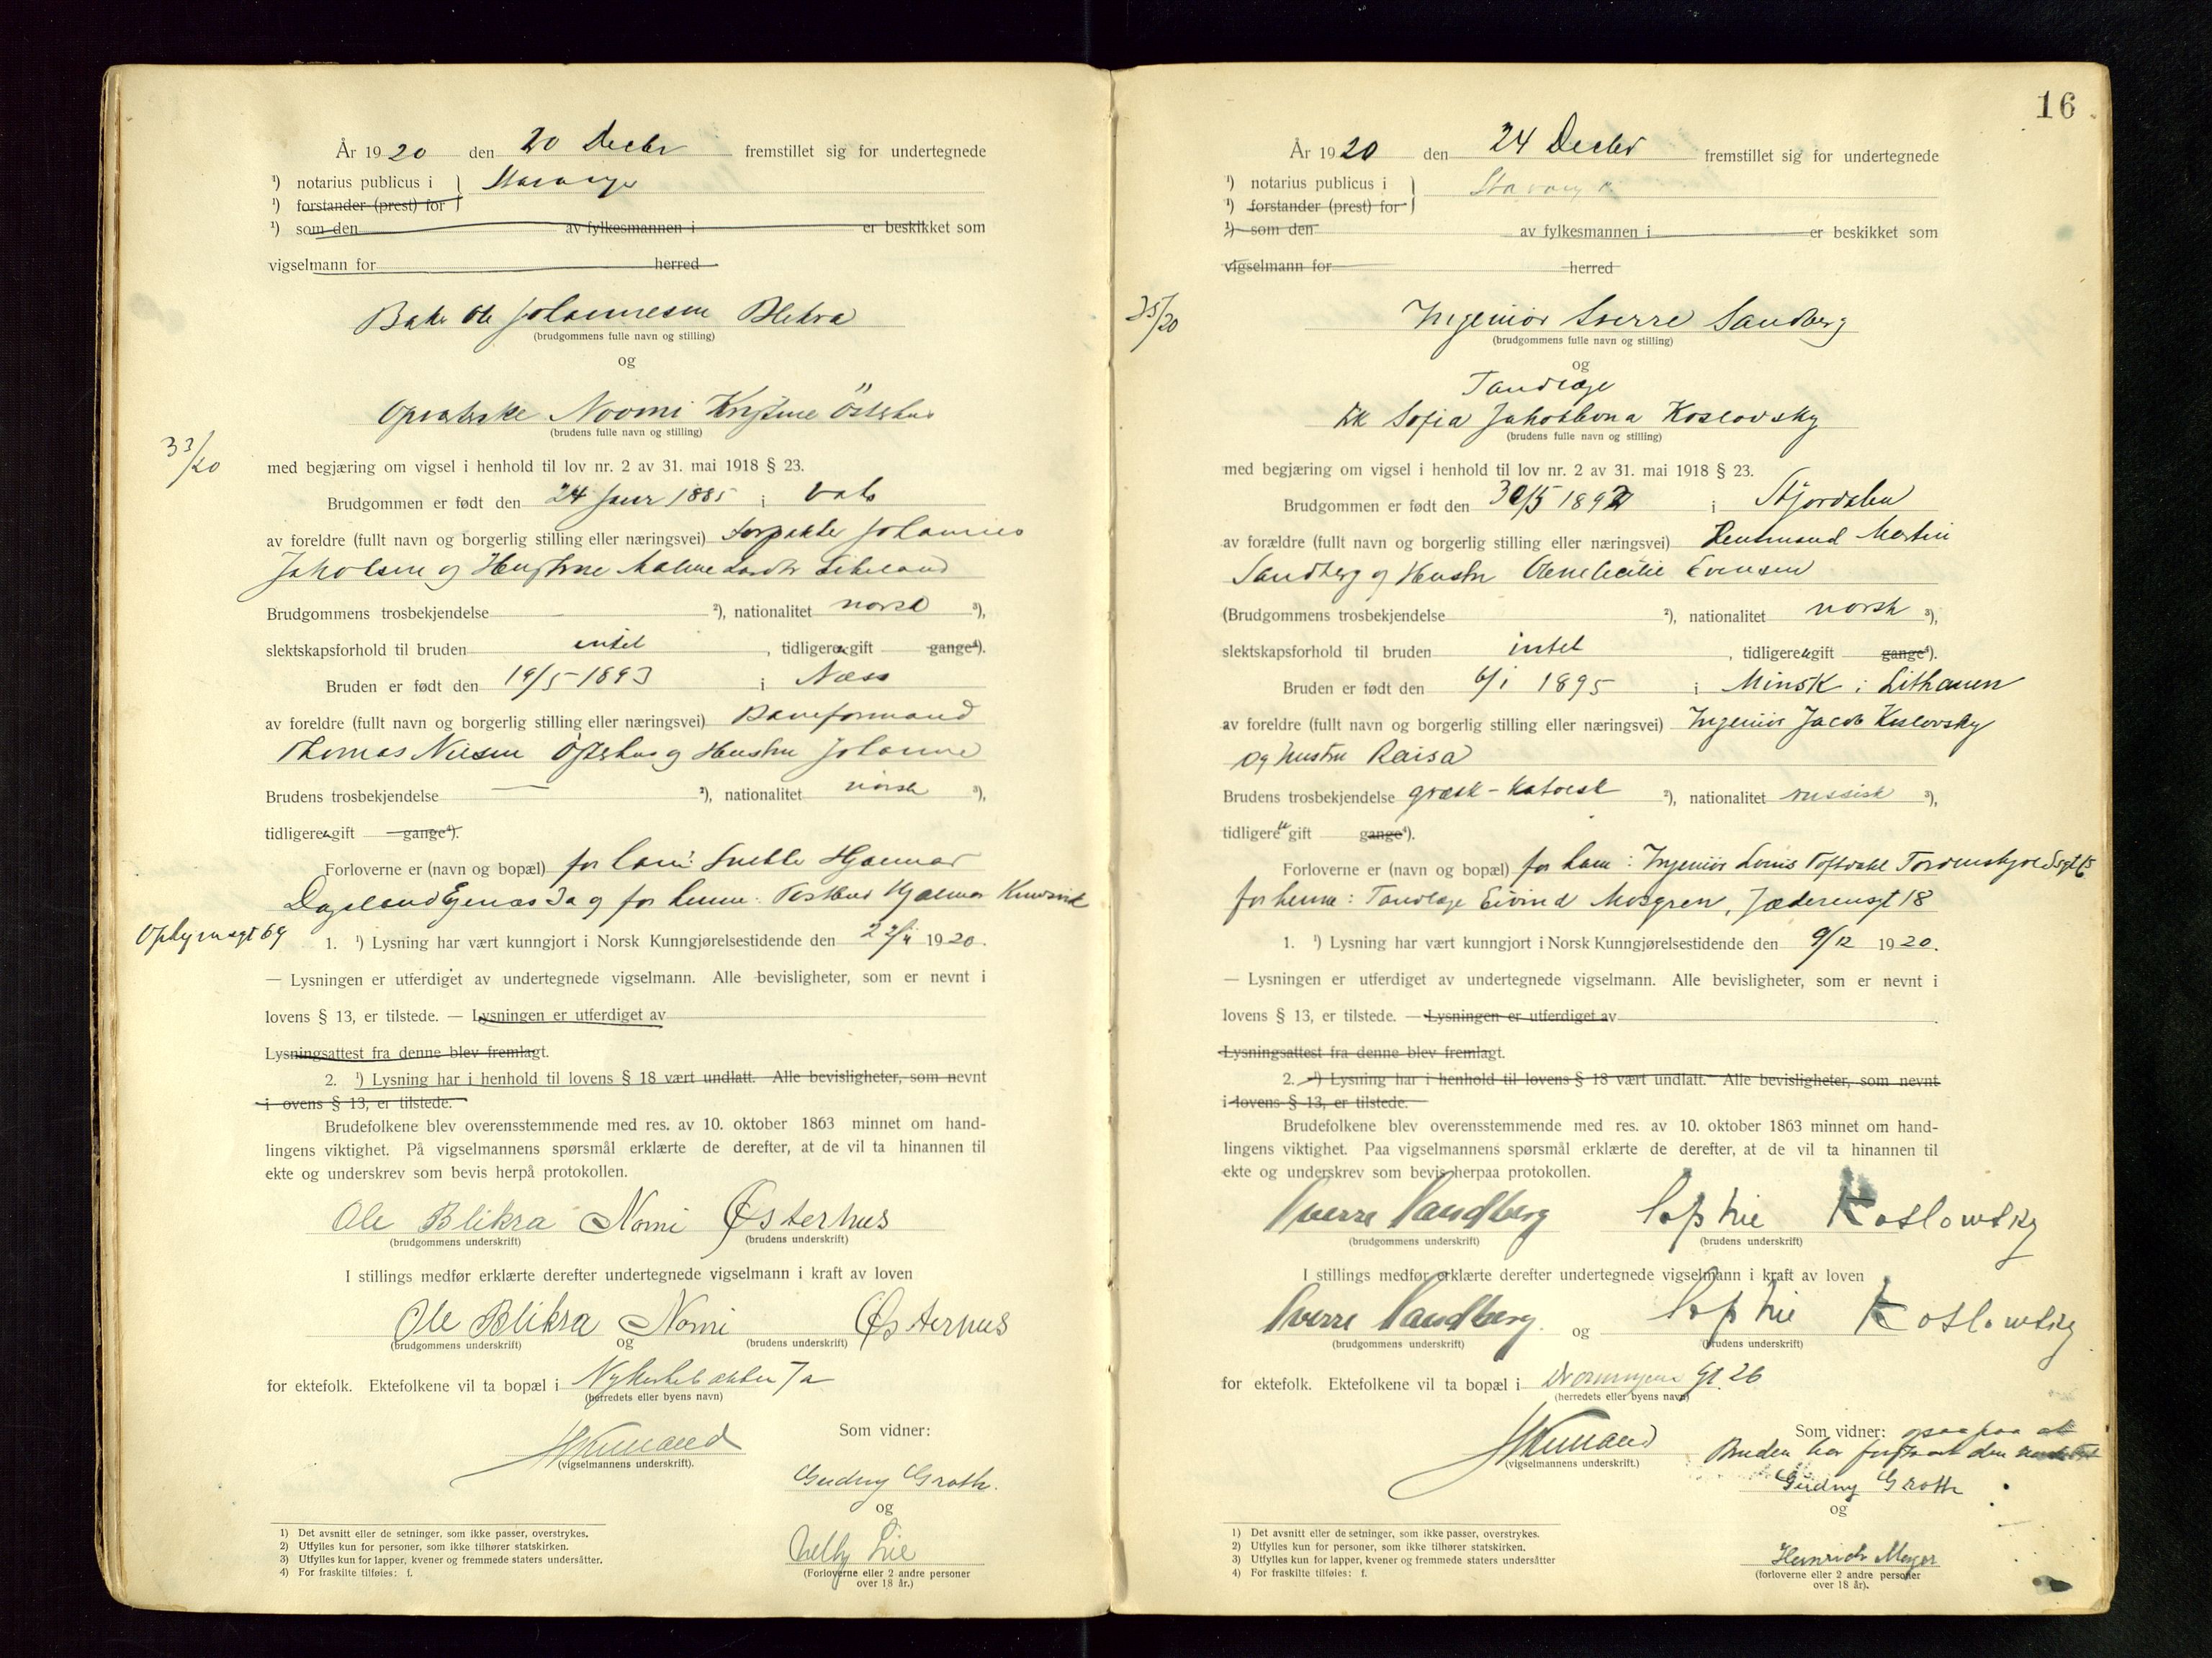 År 1920 den 20 Decbr fremstillet sig for undertegnede
¹) notarius publicus i Stavanger
¹) forstander (prest) for
¹) som den av fylkesmannen i er beskikket som
vigselmann for herred
Ole Johannesen Blikra
(brudgommens fulle navn og stilling)
og
Noomi Kristine Østerhus
(brudens fulle navn og stilling)
33/20
med begjæring om vigsel i henhold til lov nr. 2 av 31. mai 1918 § 23.
Brudgommen er født den 24 Janr 1885 i Vats
av foreldre (fullt navn og borgerlig stilling eller næringsvei) Johannes
Jakobsen og Hustrue Malene
Brudgommens trosbekjendelse — ²), nationalitet norsk ³),
slektskapsforhold til bruden intet, tidligere gift gange⁴).
Bruden er født den 19/5-1893 i Næss
av foreldre (fullt navn og borgerlig stilling eller næringsvei) Baneformand
Thomas Nilsen Østerhus og Hustru Johanne
Brudens trosbekjendelse — ²), nationalitet norsk ³),
tidligere gift gange⁴).
Forloverne er (navn og bopæl) for ham: Hjalmar
Dageland Egenæs 3a og for henne: Postbud Hjalmar Knudsen
69
1. ¹) Lysning har vært kunngjort i Norsk Kunngjørelsestidende den 22/11 1920.
— Lysningen er utferdiget av undertegnede vigselmann. Alle bevisligheter, som er nevnt i
lovens § 13, er tilstede. — Lysningen er utferdiget av
Lysningsattest fra denne blev fremlagt.
2. ¹) Lysning har i henhold til lovens § 18 vært undlatt. Alle bevisligheter, som nevnt
i ovens § 13, er tilstede.
Brudefolkene blev overensstemmende med res. av 10. oktober 1863 minnet om hand-
lingens viktighet. På vigselmannens spørsmål erklærte de derefter, at de vil ta hinannen til
ekte og underskrev som bevis herpå protokollen.
Ole Blikra Nomi Østerhus
(brudgommens underskrift) (brudens underskrift)
I stillings medfør erklærte derefter undertegnede vigselmann i kraft av loven
Ole Blikra Nomi Østerhus
(brudgommens underskrift) og (brudens underskrift)
for ektefolk. Ektefolkene vil ta bopæl i Nykirkebakken 7a
(herredets eller byens navn)
(vigselmannens underskrift).
Som vidner:
Gudny Groth.
og
Lie
(Forloverne eller 2 andre personer
over 18 år.)
1) Det avsnitt eller de setninger, som ikke passer, overstrykes.
2) Utfylles kun for personer, som ikke tilhører statskirken.
3) Utfylles kun for lapper, kvener og fremmede staters undersåtter.
4) For fraskilte tilføies: f.
16
År 1920 den 24 Decbr fremstillet sig for undertegnede
¹) notarius publicus i Stavanger
¹) forstander (prest) for
¹) som den av fylkesmannen i er beskikket som
vigselmann for herred
35/20
Ingeniør Sverre Sandberg
(brudgommens fulle navn og stilling)
og
Tandlæge
Sofia Jakoblevna Koslovsky
(brudens fulle navn og stilling)
med begjæring om vigsel i henhold til lov nr. 2 av 31. mai 1918 § 23.
Brudgommen er født den i Stjordalen
av forældre (fullt navn og borgerlig stilling eller næringsvei) Lensmand Martin
Sandberg og Hustru Cecilie Evensen
(Brudgommens trosbekjendelse ²), nationalitet norsk ³),
slektskapsforhold til bruden intet, tidligere gift gange⁴).
Bruden er født den 6/1 1895 i Minsk i Lithauen
av foreldre (fullt navn og borgerlig stilling eller næringsvei) Ingeniør Jacob Koslovsky
og hustru Raisa
Brudens trosbekjendelse græsk-katolsk ²), nationalitet russisk ³),
tidligere gift gange⁴).
Forloverne er (navn og bopæl) for ham: Ingeniør Louis Toftdahl Tordenskjoldsgt
for henne: Tandlæge Eivind Mosgren, Jæderensgt 18
1. ¹) Lysning har vært kunngjort i Norsk Kunngjørelsestidende den 9/12 1920.
— Lysningen er utferdiget av undertegnede vigselmann. Alle bevisligheter, som er nevnt i
lovens § 13, er tilstede. — Lysningen er utferdiget av
Lysningsattest fra denne blev fremlagt.
2. ¹) Lysning har i henhold til lovens § 18 vært undlatt. Alle bevisligheter, som nevnt
i lovens § 13, er tilstede.
Brudefolkene blev overensstemmende med res. av 10. oktober 1863 minnet om hand-
lingens viktighet. Paa vigselmannens spørsmål erklærte de derefter, at de vil ta hinannen til
ekte og underskrev som bevis herpaa protokollen.
Sverre Sandberg Sophie Koslowsky
(brudgommens underskrift) (brudens underskrift)
I stillings medfør erklærte derefter undertegnede vigselmann i kraft av loven
Sverre Sandberg og Sophie Koslowsky
(brudgommens underskrift) (brudens underskrift)
for ektefolk. Ektefolkene vil ta bopæl i Dronningens Gt. 26
(herredets eller byens navn)
(vigselmannens underskrift.)
Som vidner: ogsaa paa at
Bruden har forstaaet den
Gudny Groth
og
Heinrich Meyer
(forloverne eller 2 andre personer
over 18 år).
1) Det avsnitt eller de setninger, som ikke passer, overstrykes.
2) Utfylles kun for personer, som ikke tilhører statskirken.
3) Utfylles kun for lapper, kvener og fremmede staters undersåtter
4) For fraskilte tilføies: f.